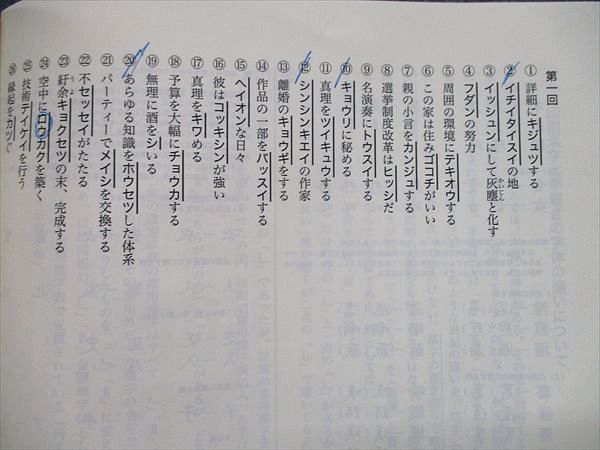 第一回
① 詳細にキジュツする
② イチイタイスイの地
③ イッシュンにして灰塵と化す
かいじん
④ フダンの努力
⑤ 周囲の環境にテキオウする
⑥ この家は住みゴコチがいい
⑦ 親の小言をカンジュする
⑧ 選挙制度改革はヒッシだ
⑨ 名演奏にトウスイする
⑩ キョウリに秘める
⑪ 真理をツイキュウする
⑫ シンシンキエイの作家
⑬ 離婚のキョウギをする
⑭ 作品の一部をバッスイする
⑮ ヘイオンな日々
⑯ 彼はコッキシンが強い
⑰ 真理をキワめる
⑱ 予算を大幅にチョウカする
⑲ 無理に酒をシいる
⑳ あらゆる知識をホウセツした体系
㉑ パーティーでメイシを交換する
㉒ 不セッセイがたたる
㉓ 紆余キョクセツの末、完成する
うよ
㉔ 空中にロウカクを築く
㉕ 技術テイケイを行う
㉖ 縁起をカツぐ